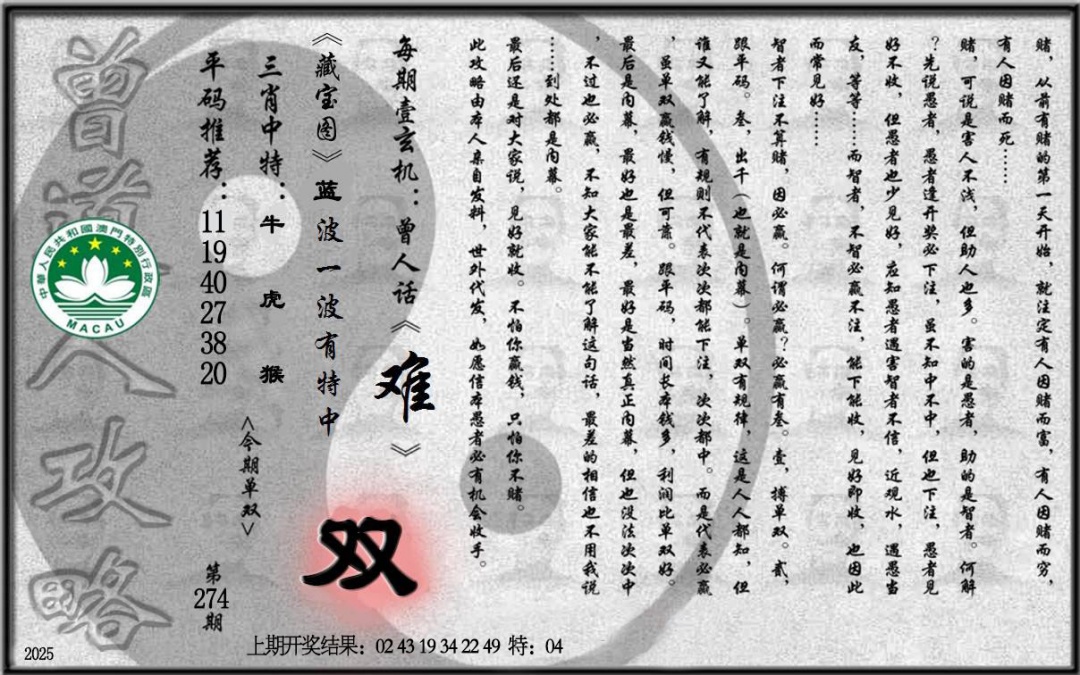 赌，从前有赌的第一天开始，就注定有人因赌而富，有人因赌而穷，
有人因赌而死……
赌，可说是害人不浅，但助人也多。害的是愚者，助的是智者。何解
？先说愚者，愚者逢开奖必下注，虽不知中不中，但也下注，愚者见
好不收，但愚者也少见好，应知愚者遇害智者不信，近观水，遇愚当
友，等等……而智者，不智必赢不注，能下能收，见好即收，也因此
而常见好……
智者下注不算赌，因必赢。何谓必赢？必赢有叁。壹，搏单双。贰，
跟平码。叁，出千（也就是内幕）。单双有规律，这是人人都知，但
谁又能了解，有规则不代表次次都能下注，次次都中。而是代表必赢
，虽单双赢钱慢，但可靠。跟平码，时间长本钱多，利润比单双好。
最后是内幕，最好也是最差，最好是当然真正内幕，但也没法次次中
，不过也必赢，不知大家能不能了解这句话，最差的相信也不用我说
……到处都是内幕。
最后还是对大家说，见好就收。不怕你赢钱，只怕你不赌。
此攻略由本人亲自发料，世外代发，如愿信本愚者必有机会收手。
每期壹玄机：曾人话《难》
《藏宝图》蓝波一波有特中
双
三肖中特：牛 虎 猴
<今期单双>
平码推荐：11 19 40 27 38 20
第274期
曾道人攻略
中華人民共和國澳門特別行政區
MACAU
上期开奖结果：02 43 19 34 22 49 特：04
2025